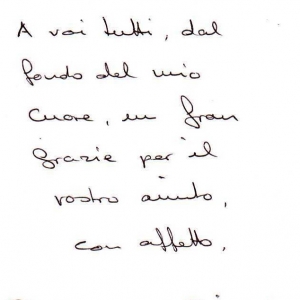 A voi tutti, dal
fondo del mio
cuore, un gran
grazie per il
vostro aiuto,
con affetto,